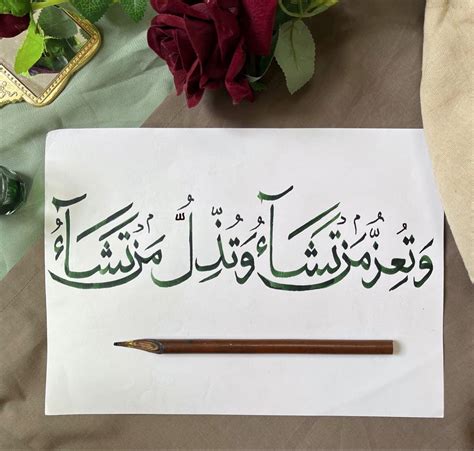 وَتُعِزُّ مَنْ تَشَآءُ وَتُذِلُّ مَنْ تَشَآءُ